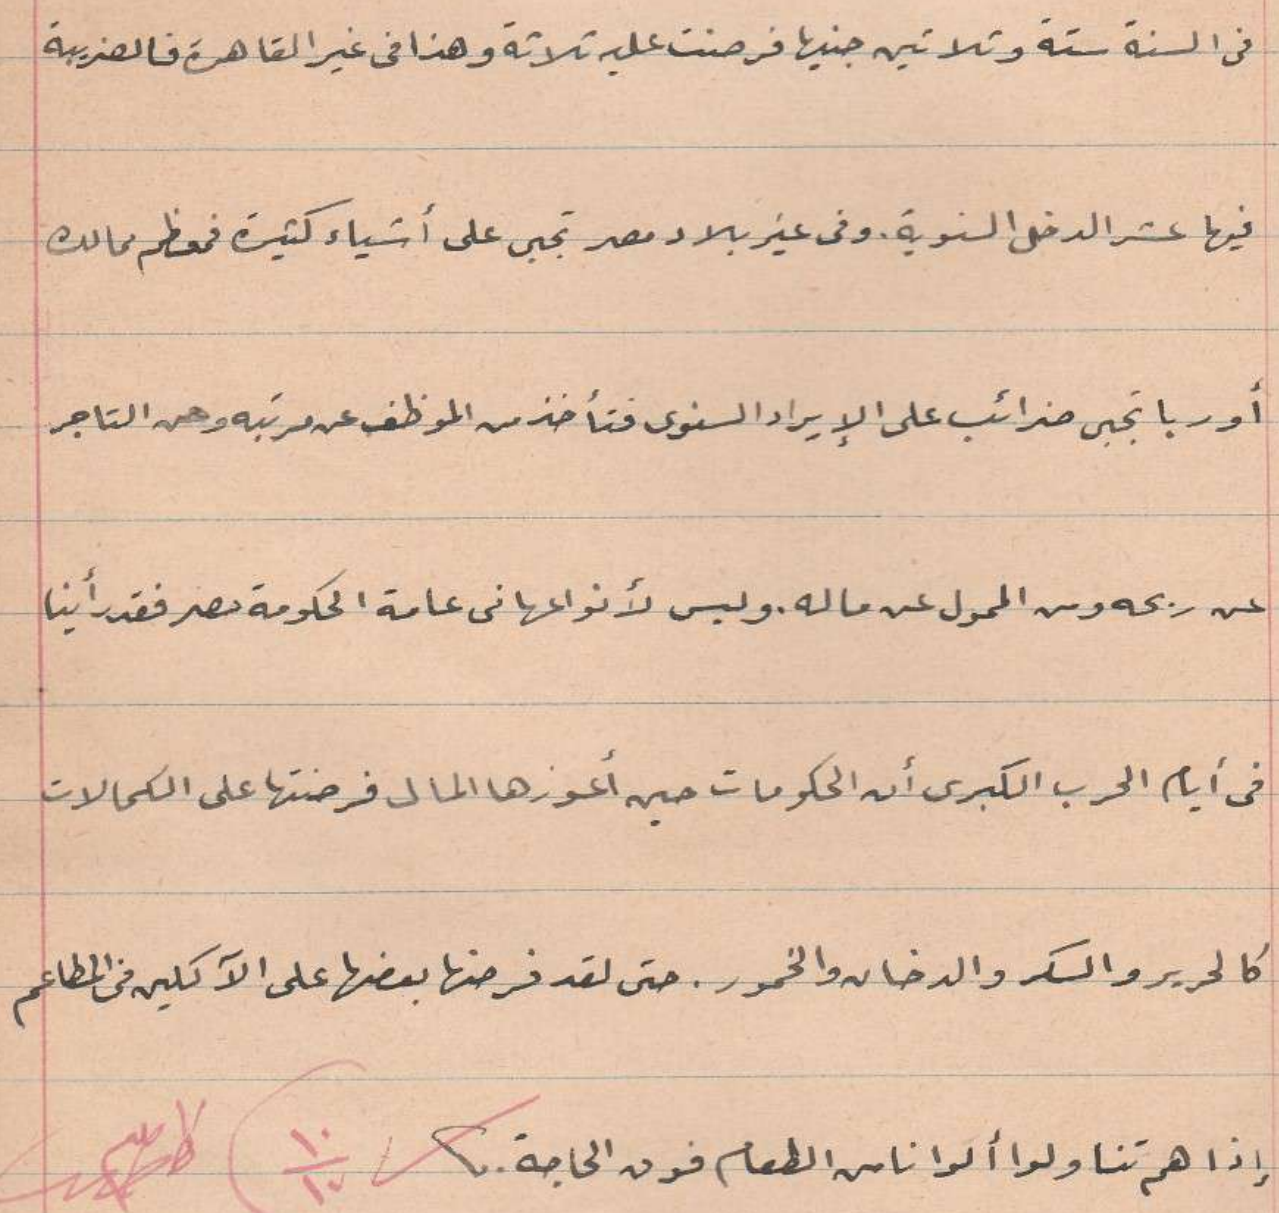 فى السنة ستة وثلاثين جنيها فرضت عليه ثلاثة وهذا فى غير القاهرة فالضريبة
فيها عشر الدخل السنوية. وفى غير بلاد مصر تجبى على أشياء كثيرة فمعظم ممالك
أوربا تجبى ضرائب على الإيراد السنوى فتأخذ من الموظف عن مرتبه ومن التاجر
عن ربحه ومن الممول عن ماله. وليس لأنواعها فى عامة الحكومة مصر فقد رأينا
فى أيام الحرب الكبرى أن الحكومات حين أعوزها المال فرضتها على الكمالات
كالحرير والسكر والدخان والخمور. حتى لقد فرضها بعضها على الآكلين فى المطاعم
إذا هم تناولوا ألوانا من الطعام فوق الحاجة.
١٠
١٠